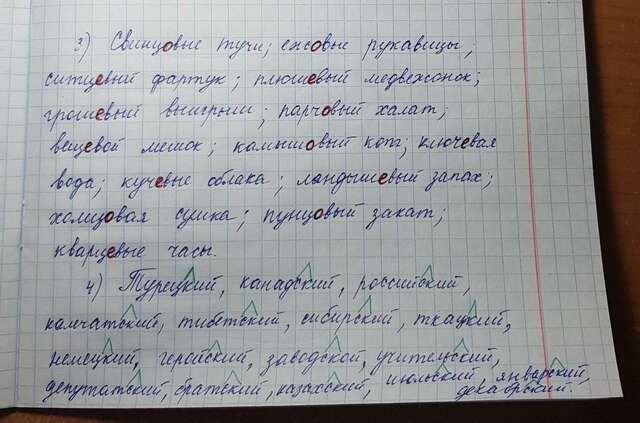 3) Свинцовые тучи; ежовые рукавицы;
ситцевый фартук; плюшевый медвежонок;
грошевый выигрыш; парчовый халат;
вещевой мешок; камышовый кот; ключевая
вода; кучевые облака; ландышевый запах;
холщовая сушка; пунцовый закат;
кварцевые часы.
4) Турецкий, канадский, российский,
камчатский, тибетский, сибирский, ткацкий,
немецкий, геройский, заводской, учительский,
депутатский, братский, казахский, июльский январский,
декабрьский.